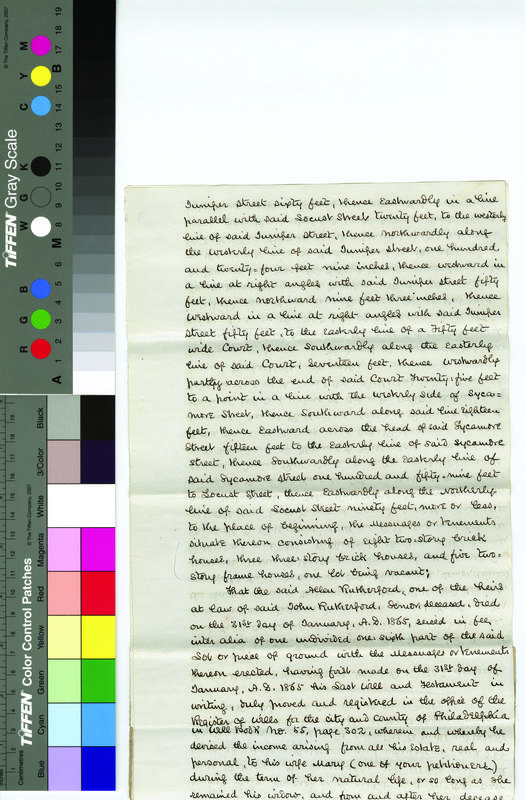 © The Tiffen Company, 2007
TIFFEN Gray Scale
R G B W G K C Y M
A 1 2 3 4 5 6 M 8 9 10 11 12 13 14 15 B 17 18 19
TIFFEN Color Control Patches
© The Tiffen Company, 2007
Centimetres
Blue Cyan Green Yellow Red Magenta White 3/Color Black
Juniper Street sixty feet, thence Eastwardly in a line
parallel with said Locust Street twenty feet, to the westerly
line of said Juniper Street, thence northwardly along
the westerly line of said Juniper Street, one hundred
and twenty-four feet nine inches, thence westward in
a line at right angles with said Juniper street fifty
feet, thence northward nine feet three inches, thence
westward in a line at right angles with said Juniper
street fifty feet, to the Easterly line of a Fifty feet
wide Court, thence Southwardly along the Easterly
line of said Court, Seventeen feet, thence westwardly
partly across the end of said Court Twenty-five feet
to a point in a line with the westerly side of Syca-
more Street, thence Southward along said line Eighteen
feet, thence Eastward across the head of said Sycamore
Street fifteen feet to the Easterly line of said Sycamore
street, thence Southwardly along the Easterly line of
said Sycamore street one hundred and fifty-nine feet
to Locust Street, thence Eastwardly along the Northerly
line of said Locust Street ninety feet, more or less,
to the place of beginning, the Messuages or tenements
situate thereon consisting of eight two-story brick
houses, three three-story brick houses, and five two-
story frame houses, one lot being vacant;
That the said Helen Rutherford, one of the heirs
at law of said John Rutherford, Senior, deceased, died
on the 31st day of January, A.D. 1865, seized in fee,
inter alia of one undivided one sixth part of the said
Lot or piece of ground with the Messuages or tenements
thereon erected, having first made on the 31st day of
January, A.D. 1865 his Last Will and Testament in
writing, duly proved and registered in the office of the
Register of Wills for the city and county of Philadelphia
in Will Book No. 55, page 302, wherein and whereby he
devised the income arising from all his Estate, real and
personal, to his wife Mary (one of your petitioners)
during the term of her natural life, or so long as she
remained his widow, and from and after her decease